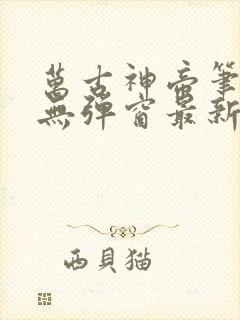 萬古神帝筆
無彈窗最新
西貝猫